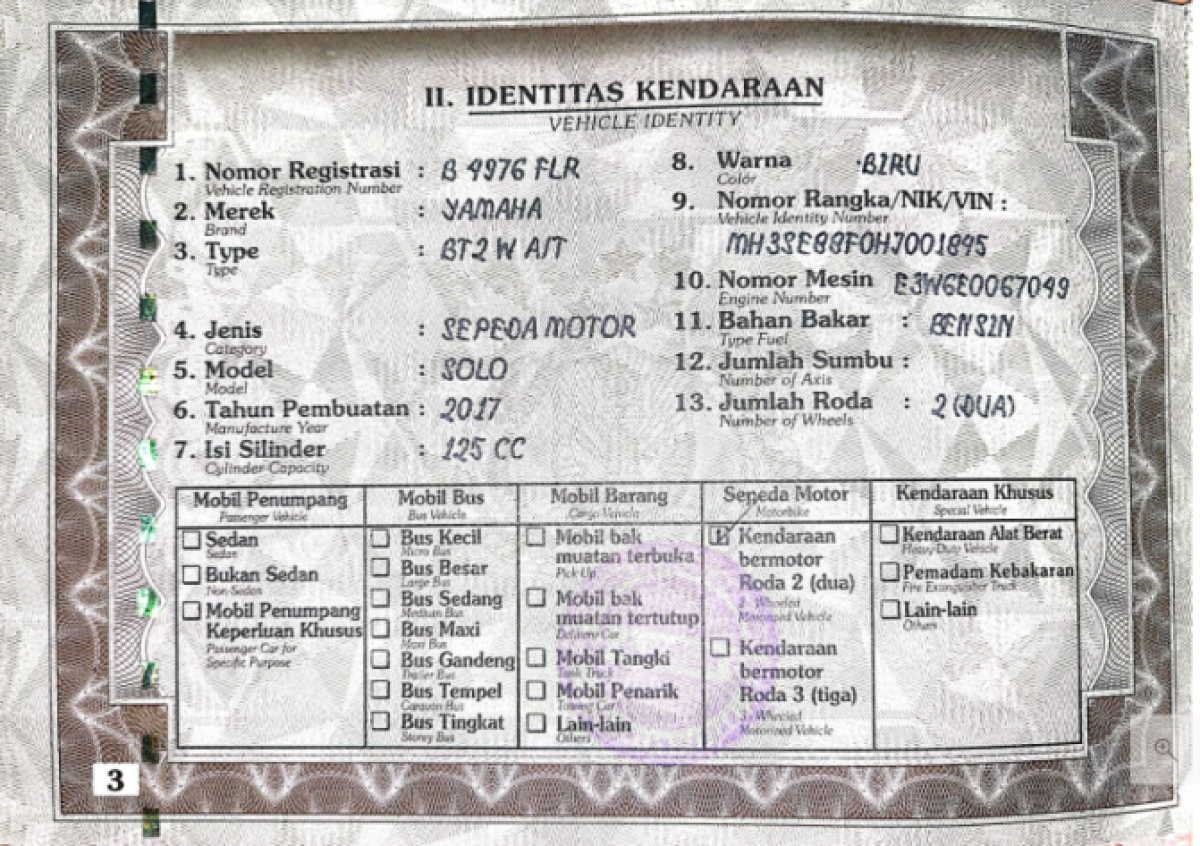 II. IDENTITAS KENDARAAN
VEHICLE IDENTITY
1. Nomor Registrasi : B 4976 FLR
Vehicle Registration Number
2. Merek : YAMAHA
Brand
3. Type : BT2 W A/T
Type
4. Jenis : SEPEDA MOTOR
Category
5. Model : SOLO
Model
6. Tahun Pembuatan : 2017
Manufacture Year
7. Isi Silinder : 125 CC
Cylinder Capacity
8. Warna : BIRU
Color
9. Nomor Rangka/NIK/VIN :
Vehicle Identity Number
MH3SE88F0HJ001895
10. Nomor Mesin E3W6E0067049
Engine Number
11. Bahan Bakar : BENSIN
Type Fuel
12. Jumlah Sumbu :
Number of Axis
13. Jumlah Roda : 2 (DUA)
Number of Wheels
Mobil Penumpang
Passenger Vehicle
Sedan
Sedan
Bukan Sedan
Non-Sedan
Mobil Penumpang
Keperluan Khusus
Passenger Car for
Specific Purpose
Mobil Bus
Bus Vehicle
Bus Kecil
Micro Bus
Bus Besar
Large Bus
Bus Sedang
Medium Bus
Bus Maxi
Maxi Bus
Bus Gandeng
Trailer Bus
Bus Tempel
Caravan Bus
Bus Tingkat
Storey Bus
Mobil Barang
Cargo Vehicle
Mobil bak
muatan terbuka
Pick Up
Mobil bak
muatan tertutup
Delivery Car
Mobil Tangki
Tank Truck
Mobil Penarik
Towing Car
Lain-lain
Others
Sepeda Motor
Motorbike
Kendaraan
bermotor
Roda 2 (dua)
2 - Wheeled
Motorized Vehicle
Kendaraan
bermotor
Roda 3 (tiga)
3 - Wheeled
Motorized Vehicle
Kendaraan Khusus
Special Vehicle
Kendaraan Alat Berat
Heavy-Duty Vehicle
Pemadam Kebakaran
Fire Extinguisher Truck
Lain-lain
Others
3